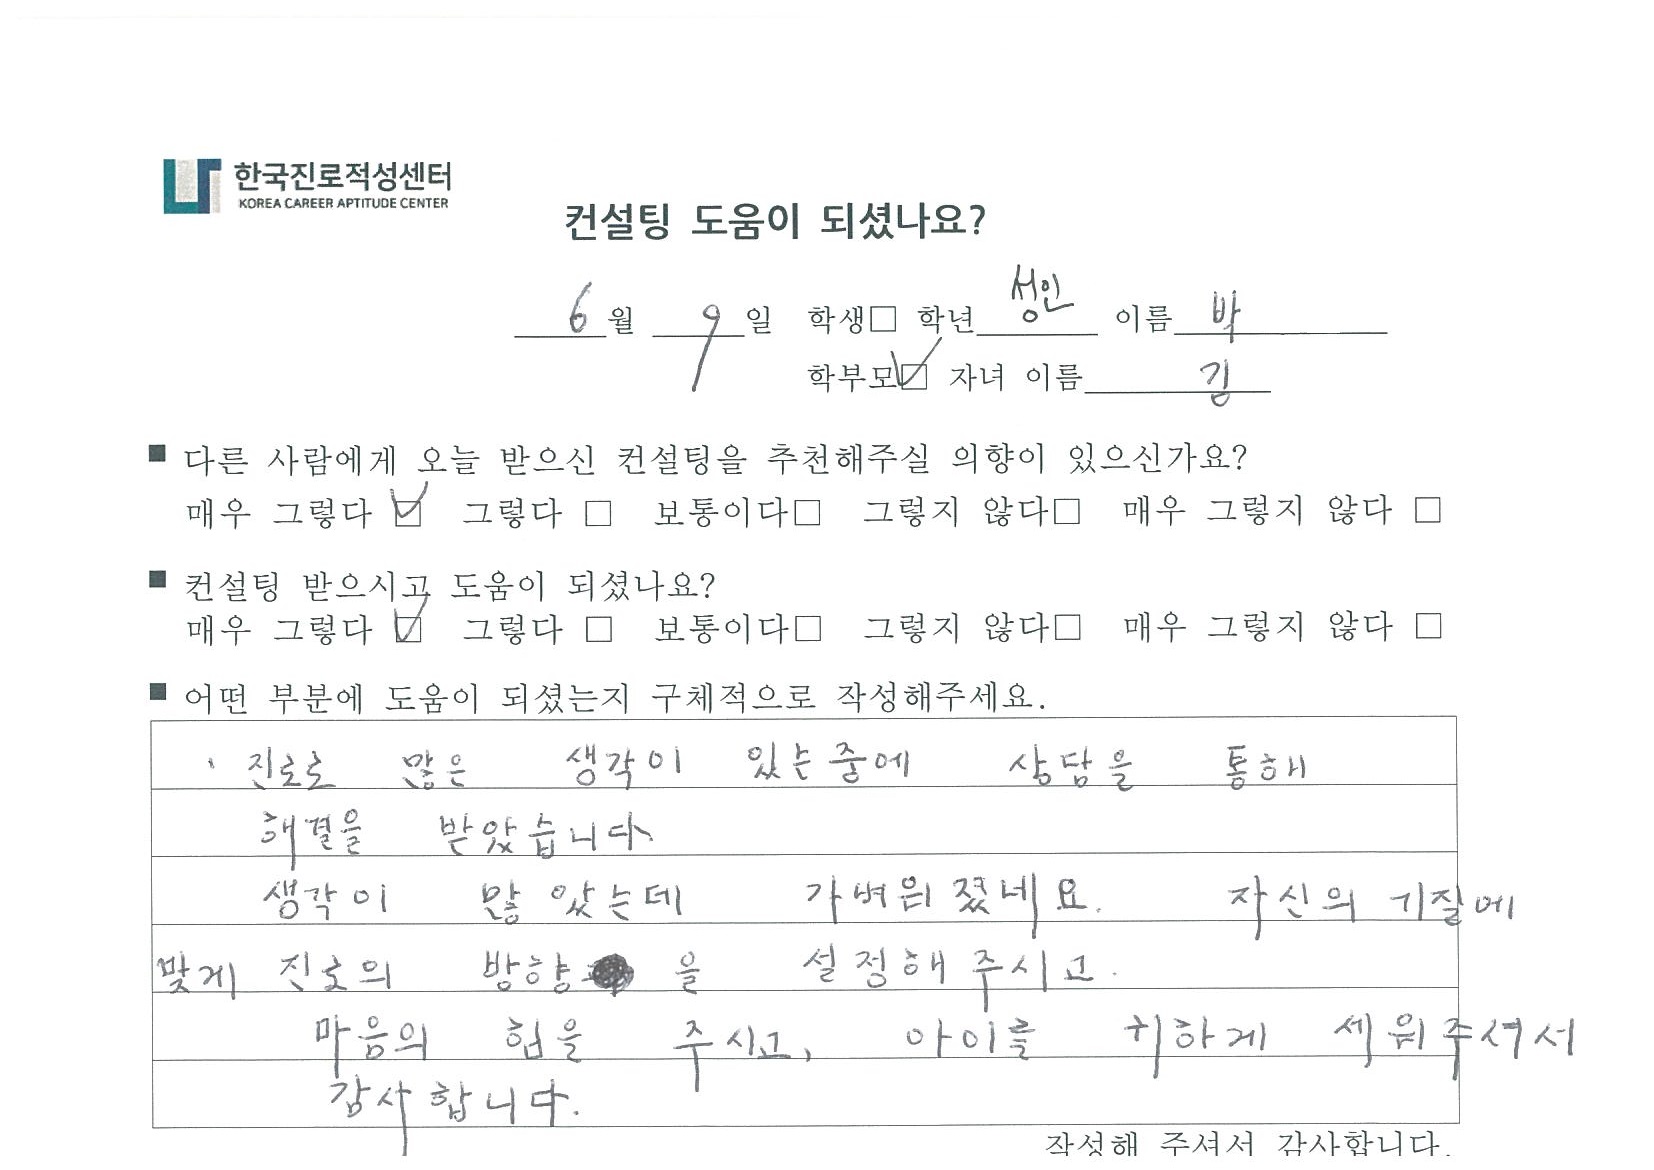 한국진로적성센터
KOREA CAREER APTITUDE CENTER
컨설팅 도움이 되셨나요?
6월 9일 학생□ 학년 성인 이름 박
학부모☑ 자녀 이름 김
■ 다른 사람에게 오늘 받으신 컨설팅을 추천해주실 의향이 있으신가요?
매우 그렇다 ☑ 그렇다 □ 보통이다□ 그렇지 않다□ 매우 그렇지 않다 □
■ 컨설팅 받으시고 도움이 되셨나요?
매우 그렇다 ☑ 그렇다 □ 보통이다□ 그렇지 않다□ 매우 그렇지 않다 □
■ 어떤 부분에 도움이 되셨는지 구체적으로 작성해주세요.
진로로 많은 생각이 있는중에 상담을 통해
해결을 받았습니다.
생각이 많았는데 가벼워졌네요. 자신의 기질에
맞게 진로의 방향을 설정해주시고.
마음의 힘을 주시고, 아이를 귀하게 세워주셔서
감사합니다.
작성해 주셔서 감사합니다.